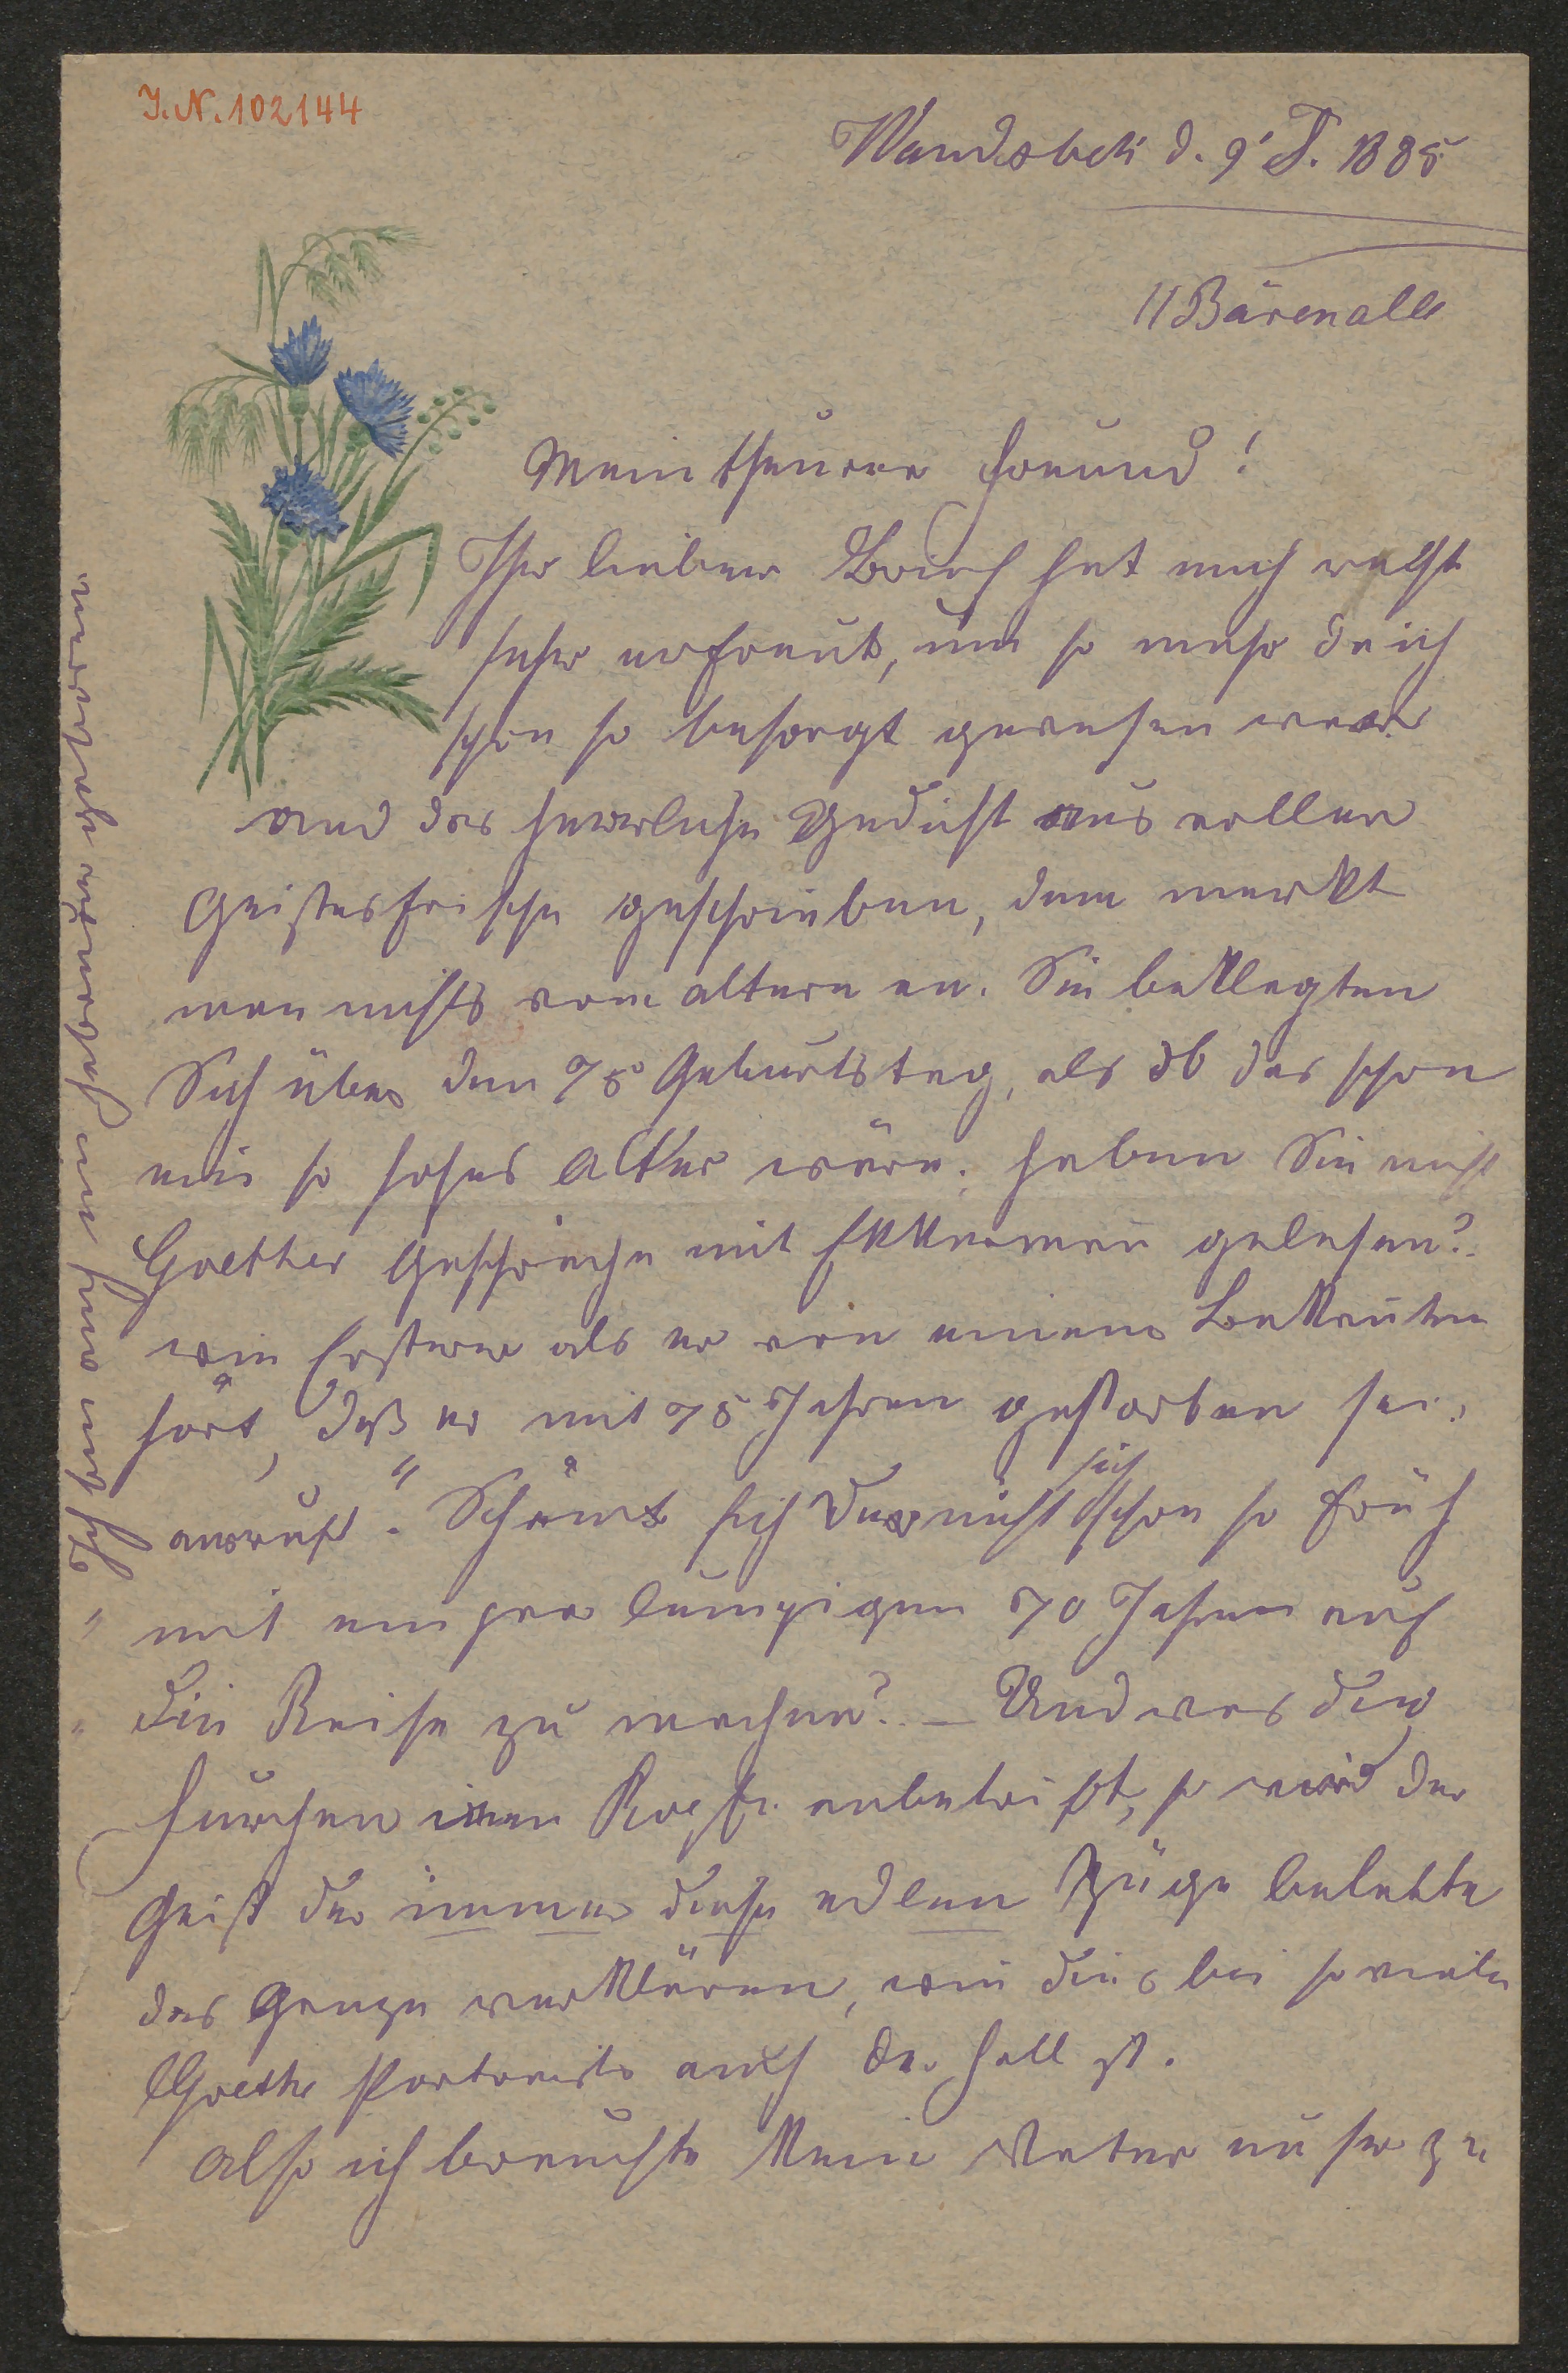 I.N. 102144
Wandsbek d. 9 1885
11 Bärenalle
Mein theurer Freund!
Ihr lieber Brief hat mich recht
sehr erfreut, um so mehr da ich
schon so besorgt gewesen war
und das herrliche Gedicht aus voller
Geistesfrische geschrieben, dem merkt
man nichts vom altern an. Sie beklagten
Sich über den 75 Geburtstag, als ob das schon
ein so hohes Alter wäre; haben Sie nicht
Goethes Gespräche mit Ekkermann gelesen?
wie Ersterer als er von einem Bekannten
hört, daß er mit 75 Jahren gestorben sei,
ausruft: "Schämt sich der nicht sich schon so früh
" mit ein paar lumpigen 70 Jahren auf
" die Reise zu machen? – Und was die
Furchen im anbetrifft, so wird der
Geist der immer diese edlen Züge belebte
das Ganze verklären, wie dies bei so viele
Goethe Portraits auch der Fall ist.
Also ich brauchte kein Vater unser zu